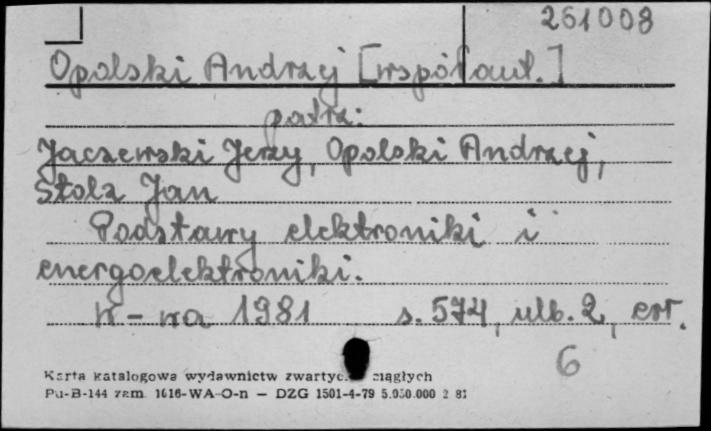 261008
Opolski Andrzej [współaut.]
patrz:
Jaczewski Jerzy, Opolski Andrzej,
Stolz Jan
Podstawy elektroniki i
energoelektroniki.
W-wa 1981 s. 574, ulb. 2, err.
6
Karta katalogowa wydawnictw zwartyc ciągłych
Pu-B-144 zam. 1616-WA-O-n — DZG 1501-4-79 5.050.000 2 81